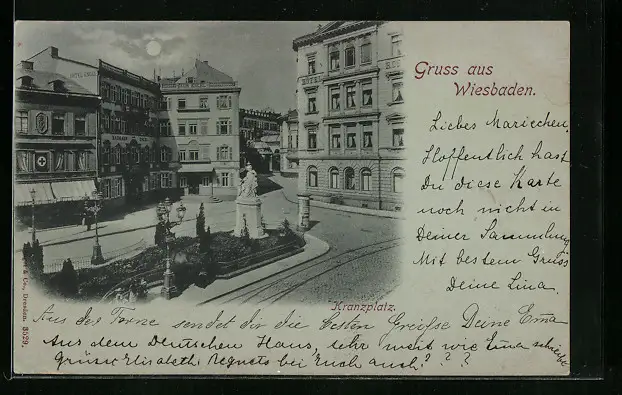 Gruss aus
Wiesbaden.
Liebes Mariechen,
Hoffentlich hast
Du diese Karte
noch nicht in
Deiner Sammlung
Mit bestem Gruss
Deine Lina.
HOTEL
Kranzplatz.
& Co., Dresden. 3529.
Aus der Ferne sendet dir die besten Greifse Deine Erna
Aus dem Deutschen Haus, sehr nicht wie Lina schreibt
grüsst Elisabeth Regnets bei Euch auch? ? ?